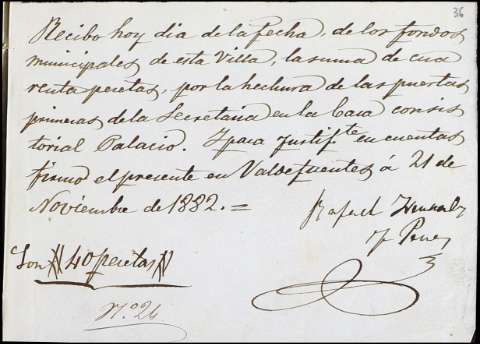 36
Recibo hoy dia de la fecha, de los fondos
municipales de esta Villa, la suma de cua
renta pesetas, por la hechura de las puertas
primeras de la Secretaria en la Casa consis
torial Palacio. Y para justifte en cuentas
firmo el presente en Valdefuentes á 21 de
Noviembre de 1882.=
Rafael
y
Son 40 pesetas
N.o 26